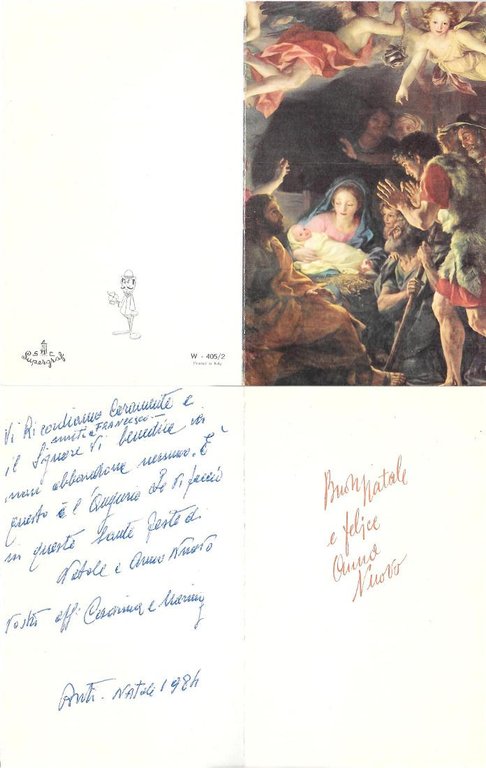 Supergraf
W - 405/2
Printed in Italy
Vi Ricordiamo Caramente e
unito a FRANCESCO
il Signore Vi benedice
non abbandona nessuno. E'
questo è l'Augurio che Vi faccio
in queste Sante feste di
Natale e Anno Nuovo
Vostri aff. Cesarina e
Natale 1984
Buon Natale
e felice
Anno
Nuovo